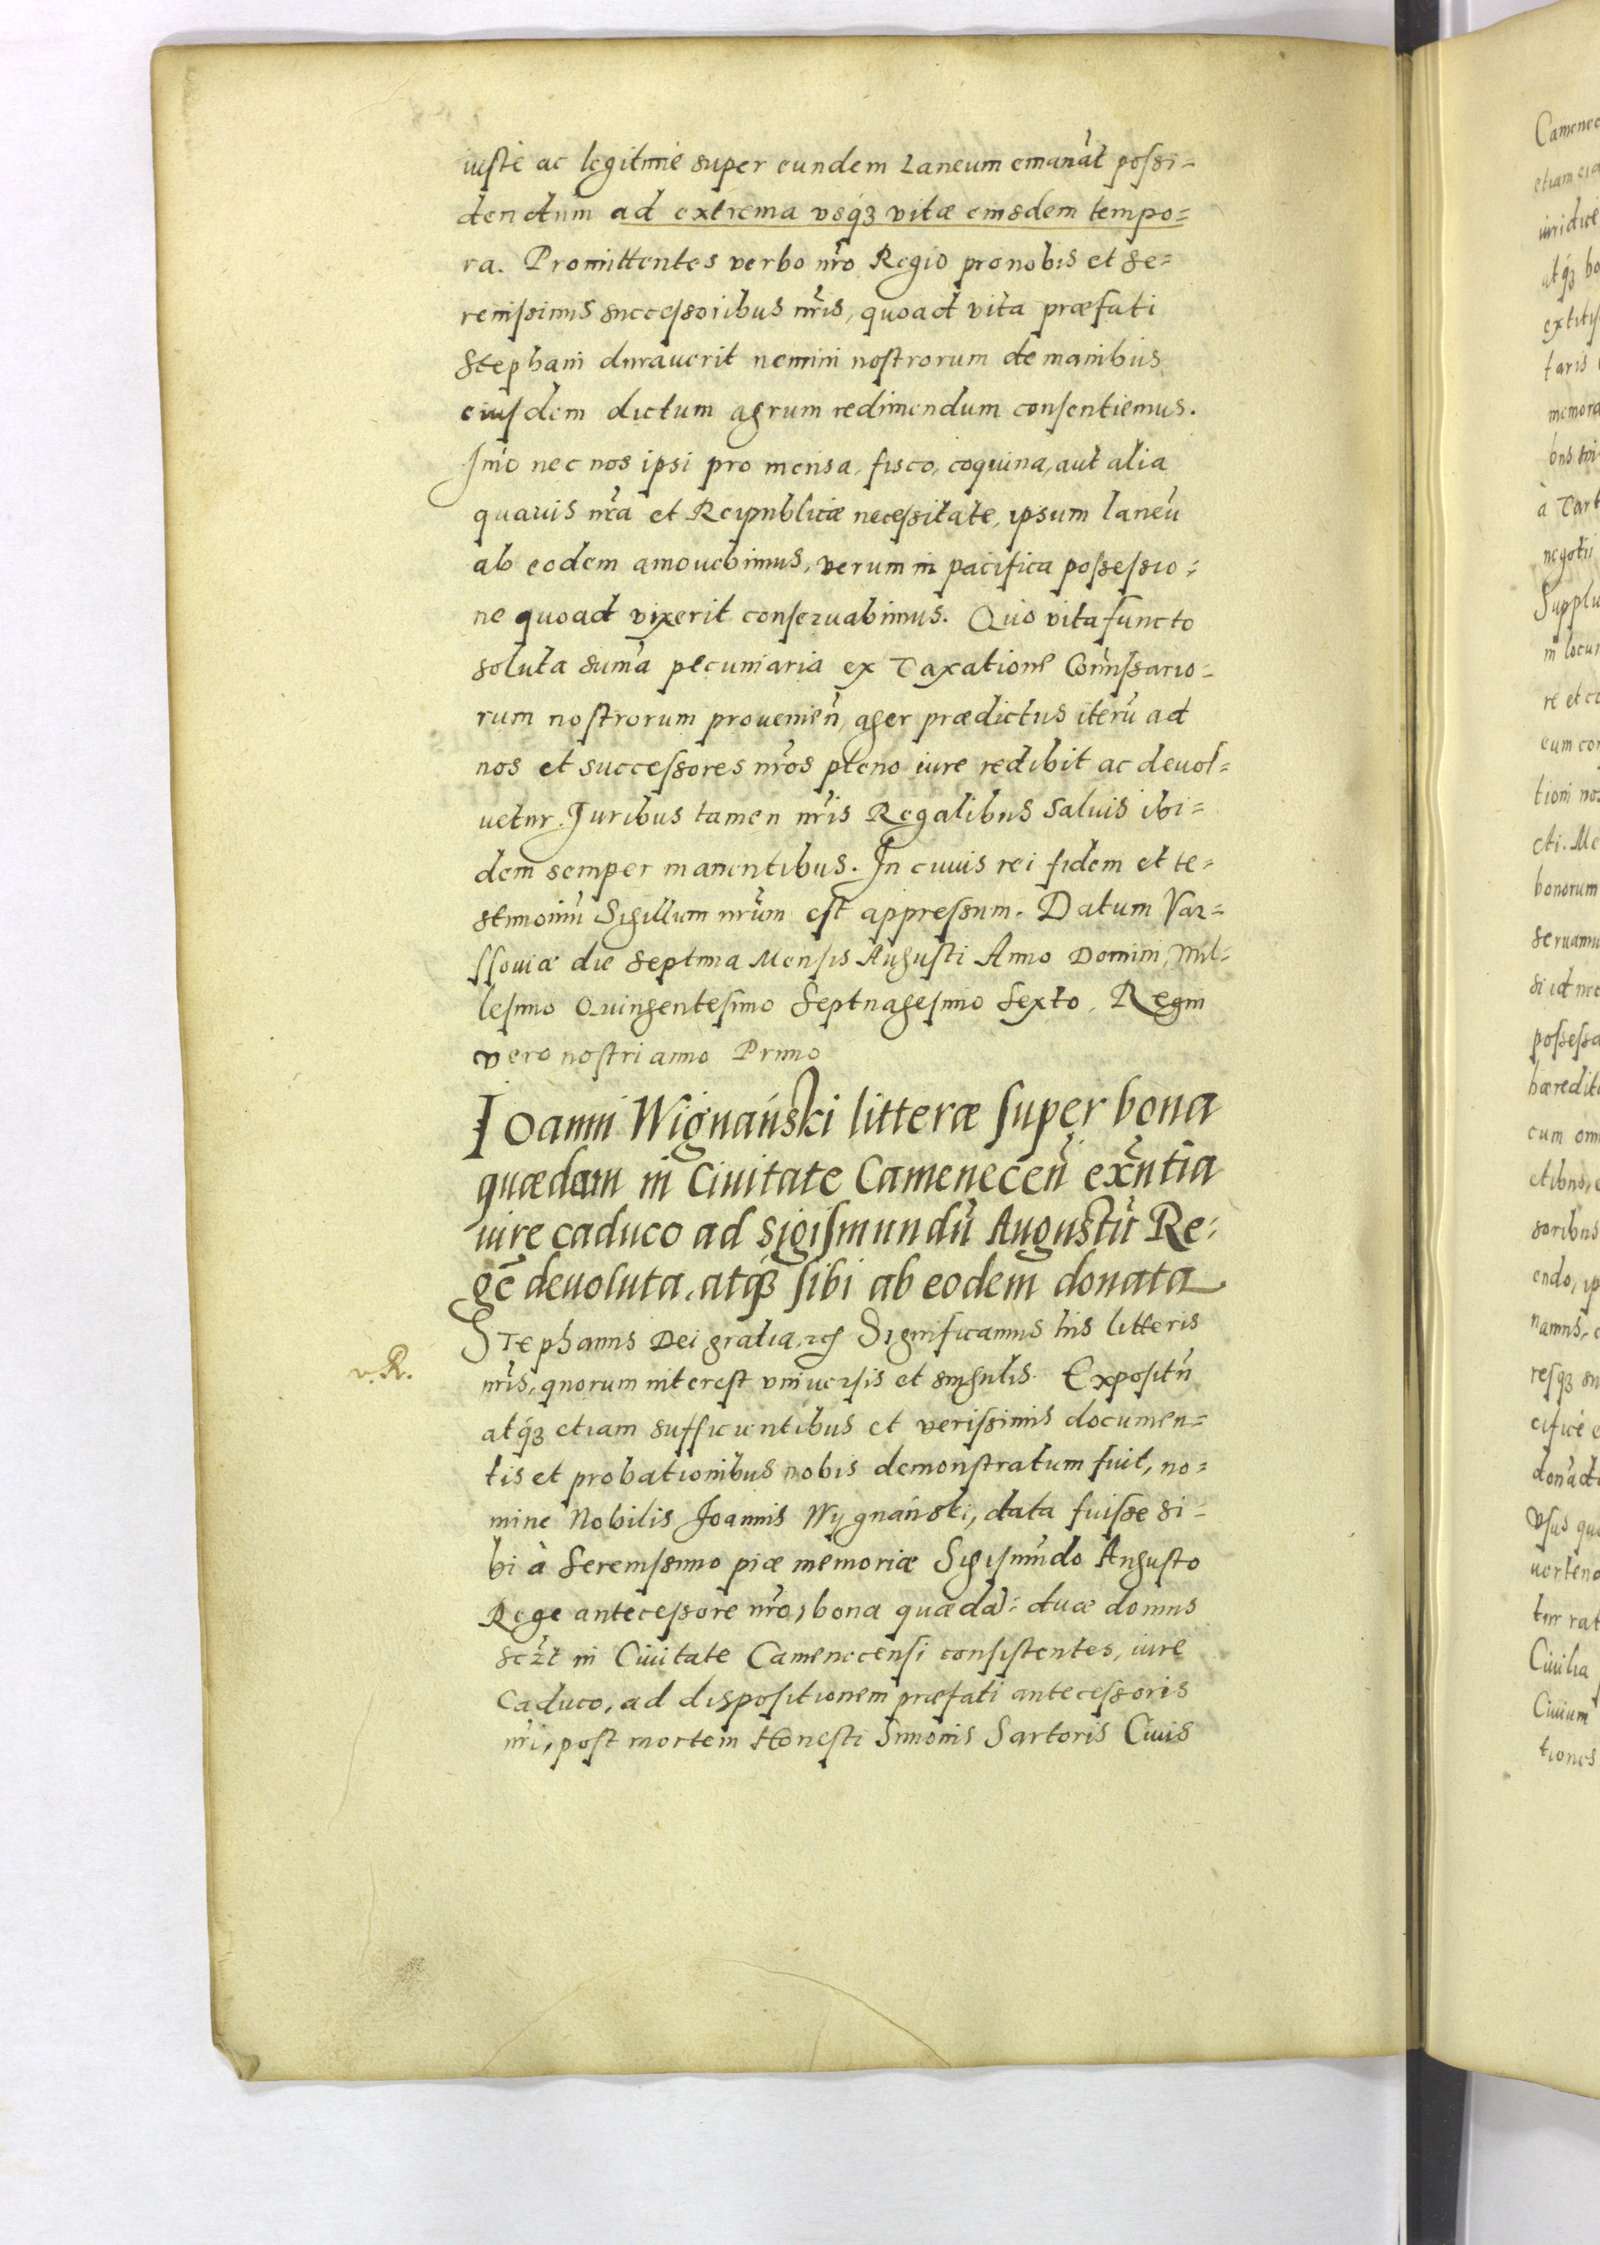 iustè ac legitimè super eundem Laneum emanãt possi-
dendum ad extrema vsq́ꝫ vitæ eiusdem tempo=
ra. Promittentes verbo nr̃o Regio pro nobis et Se=
renissimis successoribus nr̃is, quoad vita præfati
Stephani durauerit nemini nostrorum de manibus
eiusdem dictum agrum redimendum consentiemus.
Imò nec nos ipsi pro mensa, fisco, coquina, aut alia
quauis nr̃a et Reipublicæ necessitate, ipsum laneũ
ab eodem amouebimus, verum in pacifica possessio=
ne quoad vixerit conseruabimus. Quo vita functo
soluta sum̃a pecuniaria ex Taxatione Com̃issario-
rum nostrorum prouenieñ, ager prædictus iterũ ad
nos et successores nr̃os pleno iure redibit ac deuol=
uetur. Juribus tamen nr̃is Regalibus saluis ibi=
dem semper manentibus. In cuius rei fidem et te=
stimoniũ Sigillum nr̃um est appressum. Datum Var=
ssouiæ die Septima Mensis Augusti Anno Domini, Mil=
lesimo Quingentesimo Septuagesimo Sexto, Regni
vero nostri anno Primo
Ioanni Wignański litteræ super bona
quædam in Ciuitate Cameneceñ ex̃ntia
iure caduco ad Sigismundũ Augustũ Re=
gẽ deuoluta, atq́ꝫ sibi ab eodem donata
Stephanus Dei gratia, etc̃ Significamus his litteris
v. R.
nr̃is, quorum interest vniuersis et singulis. Expositũ
atq́ꝫ etiam sufficientibus et verissimis documen=
tis et probationibus nobis demonstratum fuit, no=
mine Nobilis Joannis Wygnański, data fuisse si-
bi à Serenissimo piæ memoriæ Sigismũdo Augusto
Rege antecessore nr̃o, bona quædã: duæ domus
scz̃t in Ciuitate Camenecensi consistentes, iure
Caduco, ad dispositionem præfati antecessoris
nr̃i, post mortem Honesti Simonis Sartoris Ciuis